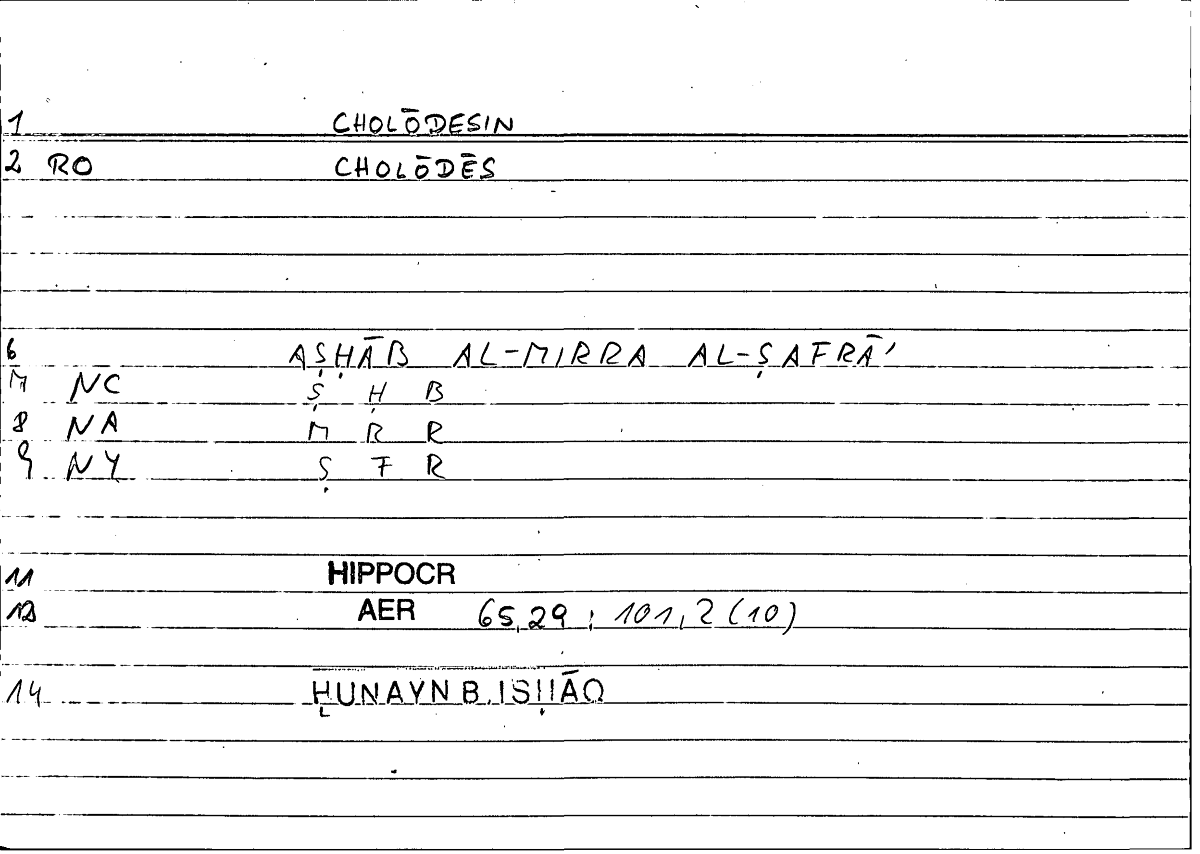 1 CHOLŌDESIN
2 RO CHOLŌDĒS
6 AṢḤĀB AL-MIRRA AL-ṢAFRĀ'
7 NC Ṣ Ḥ B
8 NA M R R
9 NY Ṣ F R
11 HIPPOCR
12 AER 65,29 ; 101,2 (10)
14 ḤUNAYN B. ISḤĀQ